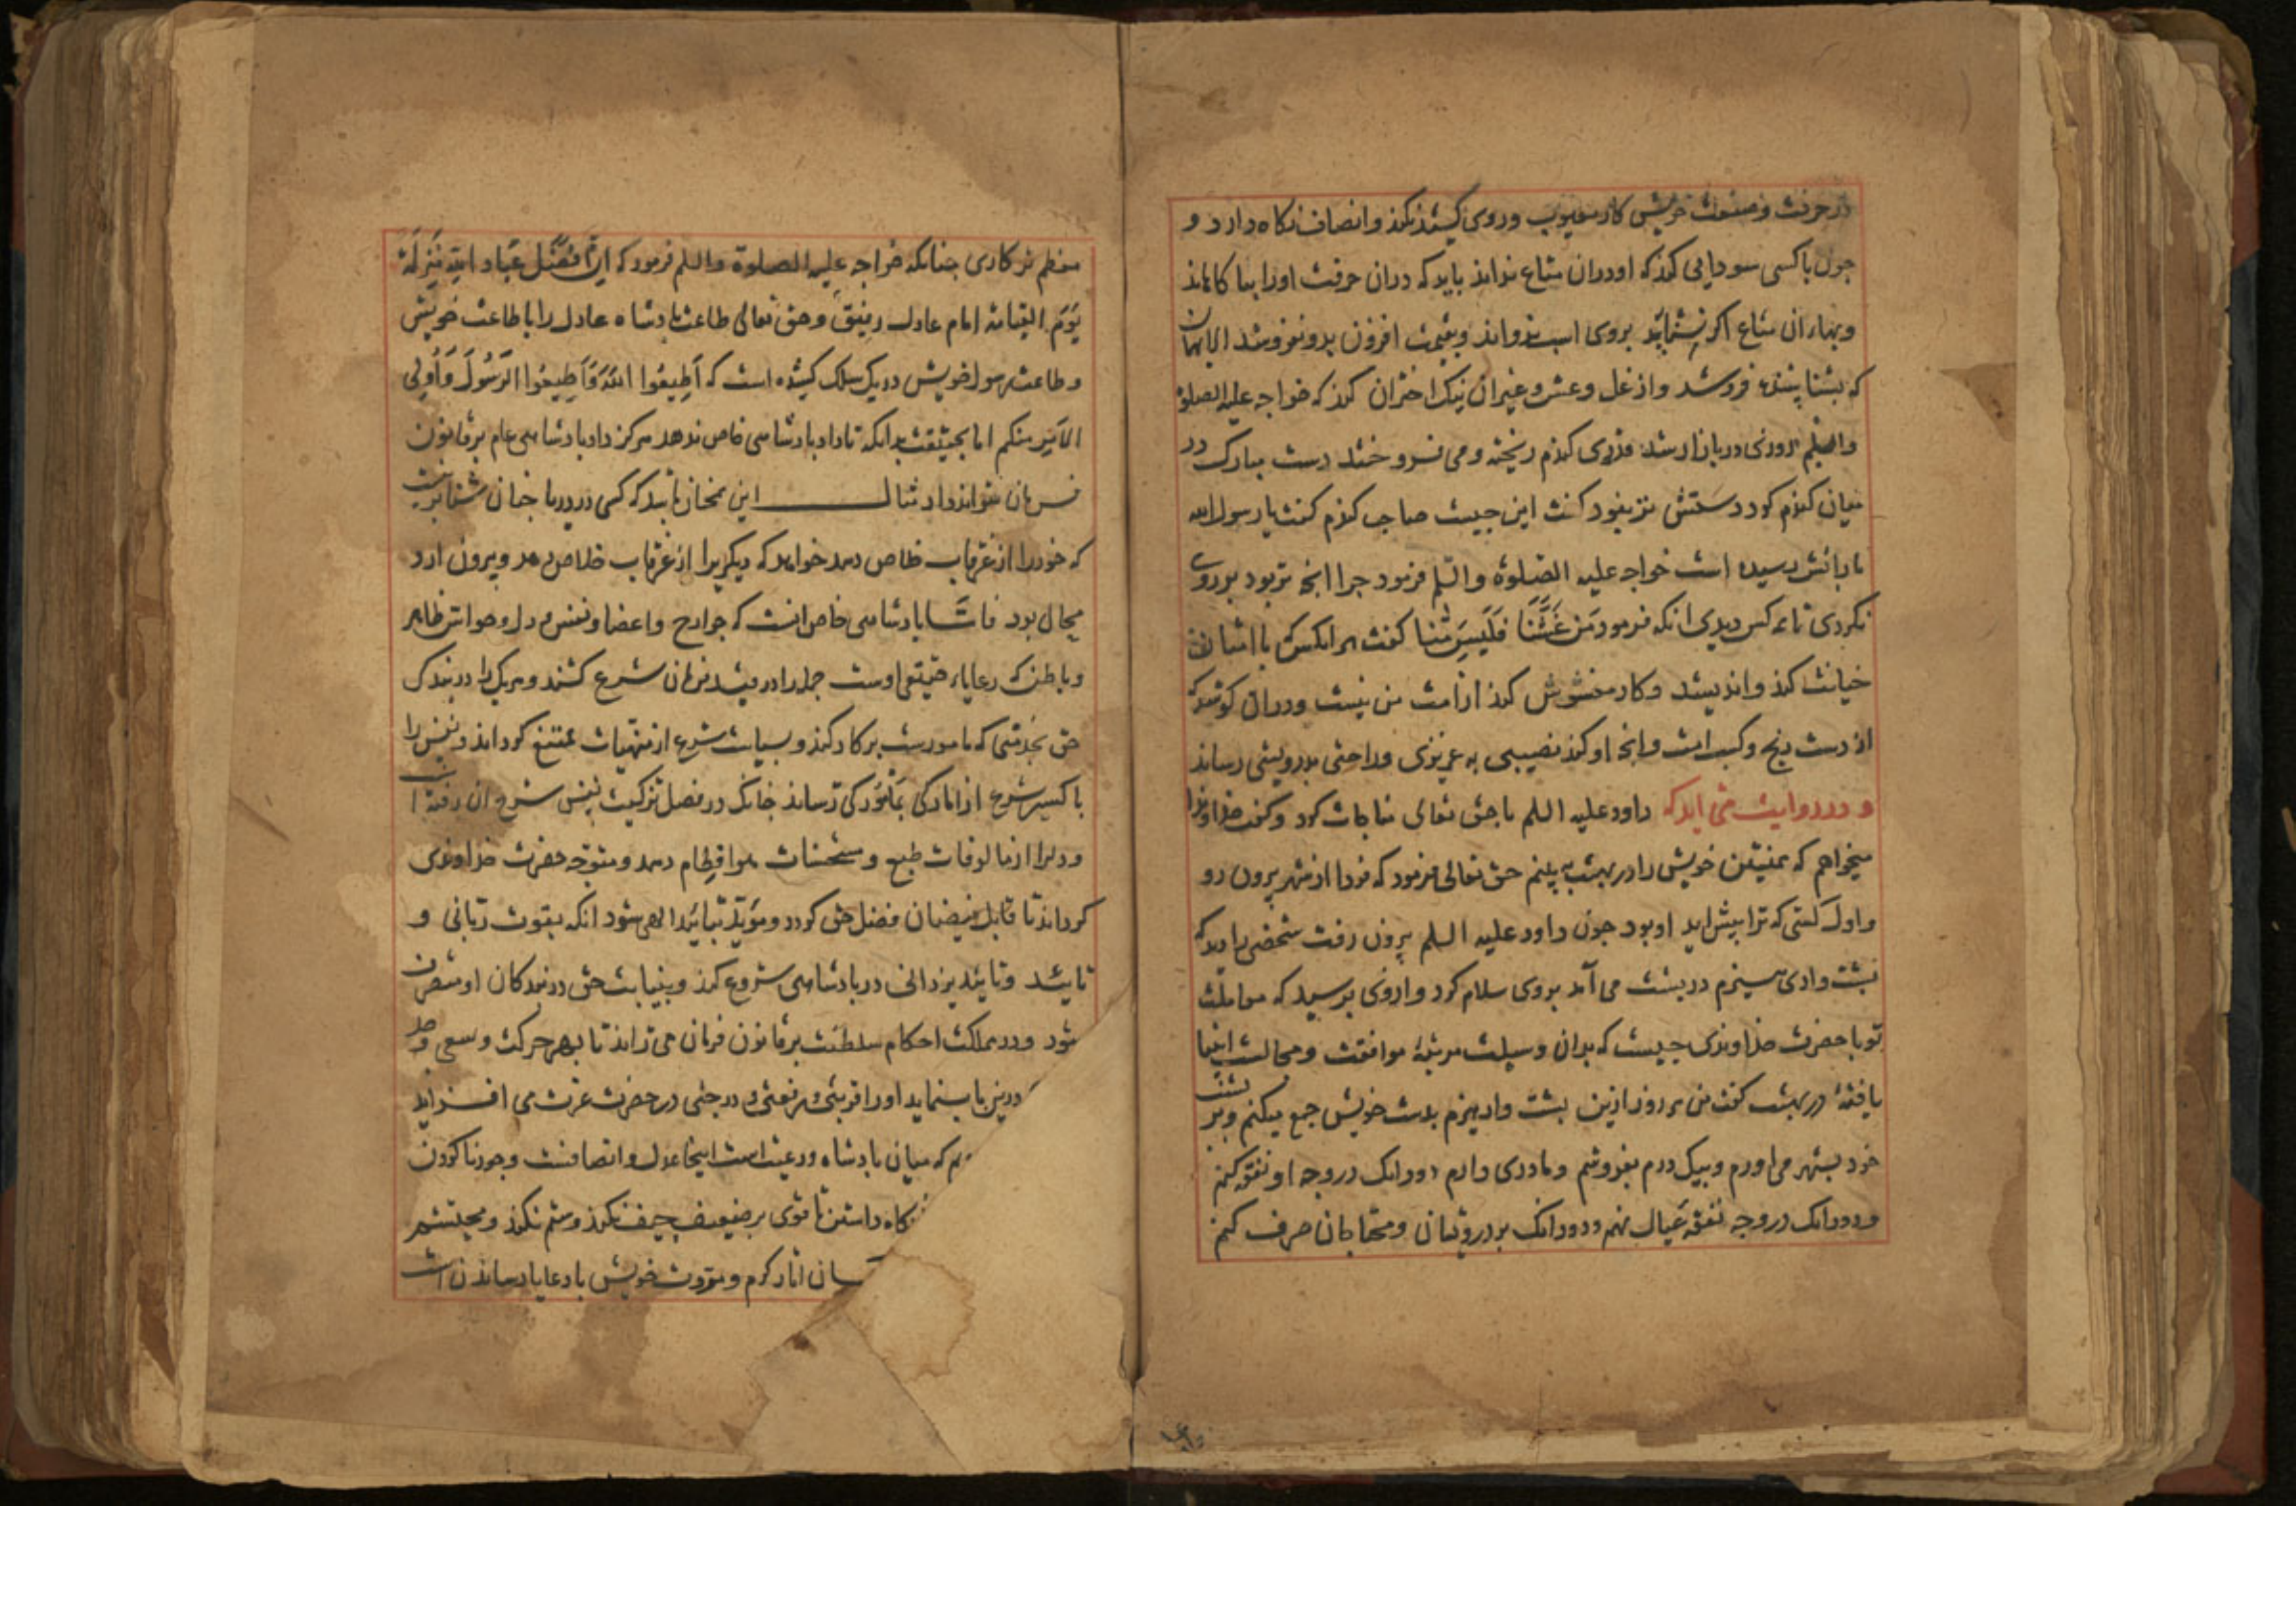 در حرفت و صنعت خویش کار معیوب و روی کشیده نکند و انصاف نکاه دارد و
چون با کسی سودایی کند که او دران متاع نداند باید که دران حرفت او را بها کا ماند
وبهاء ان متاع اکر نشناید بروی اسب ندواند و بقیمت افزون بدو نفروشد الا بهمان
که بشناسنده فروشد و از غل و غش و غیر ان نیک احتراز کند که خواجه علیه الصلوة
والسلم روزی در بازار شد مردی کندم ریخته و می فروختند دست مبارک در
میان کندم کرد دستش تر بنود کفت این چیست صاحب کندم کفت یا رسول الله
بارانش رسیده است خواجه علیه الصلوة والسلم فرمود چرا انچه تر بود بر روی
نکردی تا همه کس دیدی انکه فرمود مَن غَشَّنَا فَلَیسَ مِنَّا کفت هر انکس که با امتان
خیانت کند و اندیشد و کار مغشوش کند از امت من نیست و دران کوشد که
از دست رنج و کسب است و انچه او کند نصیبی به عزیزی و راحتی بدرویشی رساند
و در روایت می اید که داود علیه السلم با حق تعالی مناجات کرد و کفت خداوندا
میخواهم که همنشین خویش را در بهشت ببینم حق تعالی فرمود که فردا از شهر بیرون رو
و اول کسی که ترا پیش اید او بود چون داود علیه السلم بیرون رفت شخصی را دید که
پشت واری هیزم در پشت می آمد بروی سلام کرد و از وی پرسید که معاملت
تو با حضرت خداوندی چیست که بدان وسیلت مرتبۀ موافقت و مجالست انبیا
یافتۀ در بهشت کفت من هر روز ازین پشت وار هیزم بدست خویش جمع میکنم و بر پشت
خود بشهر می اورم و بیک درم بفروشم و مادری دارم دو دانک در وجه او نفقه کنم
و دو دانک در وجه نفقه عیال نهم و دو دانک بر درویشان و محتاجان صرف کنم
معظم تر کاری چنانکه خواجه علیه الصلوة والسلم فرمود که اِنَّ اَفضَل عِبَادِ اللهِ مَنزِلَةً
یَومَ القیامة امام عادل رفیق و حق تعالی طاعت بادشاه عادل را با طاعت خویش
و طاعت رسول خویش در یک سلک کشیده است که اَطِیعُوا اللهَ وَاَطِیعُوا الرَّسُولَ وَاُولِی
الاَمرِ منکم اما بحقیقت بدانکه تا داد بادشاهی خاص ندهد هرکز داد بادشاهی عام بر قانون
فرمان نتواند داد مثال این همچنان باشد که کسی در دریا چنان شنا نیست
که خود را از غرقاب خلاص دهد خواهد که دیکریرا از غرقاب خلاص دهد و بیرون ارد
محال بود فامّا بادشاهی خاص انست که جوارح و اعضا و نفس و دل و حواس ظاهر
و باطن که رعایاء حقیقی اوست جمله را در قید فرمان شرع کشند و هر یک را در بندکی
حق بخدمتی که مامورست بر کار کند و بسیاست شرع از منهیات ممتنع کرداند و نفس را
با کسیر شرع از امارکی بمامورکی رساند چنانک در فصل تزکیت نفس شرح ان رفته است
و دلرا از مالوفات طبع و مستحسنات هوا فطام دهد و متوجه حضرت خداوندی
کرداند تا قابل فیضان فضل حق کردد و مؤید بتایید الهی شود انکه بقوت ربانی و
تایید و تایید یزدانی در بادشاهی شروع کند و بنیابت حق در بندکان او متصرف
شود و در مملکت احکام سلطنت بر قانون فرمان می راند تا بهر حرکت و سعی و جد
درین باب نماید او را قربتی و رفعتی و درجتی در حضرت عزت می افزاید
که میان بادشاه و رعیت است اینجا عدل و انصافست و جور ناکردن
نکاه داشتن تا قوی بر ضعیف حیف نکند و ستم نکند و محتشم
سان اثار کرم و مروت خویش با رعایا رساندن است